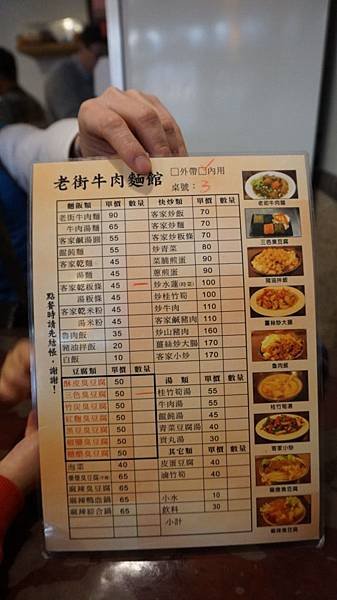 老街牛肉麵館
□外帶□內用
桌號：3
點餐時請先結帳，謝謝！
麵飯類 單價 數量
老街牛肉麵 90
牛肉湯麵 65
客家鹹湯圓 55
餛飩麵 55
客家乾麵 45
湯麵 45
客家乾粄條 45
湯粄條 45
客家乾米粉 45
湯米粉 45
魯肉飯 35
豬油拌飯 20
白飯 10
豆腐類 單價 數量
酥皮臭豆腐 50
三色臭豆腐 50
竹炭臭豆腐 50
紅麴臭豆腐 50
黑豆臭豆腐 50
椒鹽臭豆腐 50
糖醋臭豆腐 50
泡菜 40
65
麻辣臭豆腐 65
麻辣鴨血鍋 65
麻辣綜合鍋 65
快炒類 單價 數量
客家炒飯 70
客家炒麵 70
客家炒粄條 70
炒青菜 80
菜脯煎蛋 90
蔥煎蛋 90
炒水蓮(時菜) 100
炒桂竹筍 100
炒牛肉 110
客家鹹豬肉 110
炒山豬肉 160
薑絲炒大腸 170
客家小炒 170
湯類 單價 數量
桂竹筍湯 55
牛肉湯 55
餛飩湯 45
青菜豆腐湯 40
貢丸湯 30
其它類 單價 數量
皮蛋豆腐 40
滷竹筍 40
小水 10
飲料 30
小計
老街牛肉麵
三色臭豆腐
豬油拌飯
薑絲炒大腸
魯肉飯
桂竹筍湯
客家小炒
麻辣臭豆腐